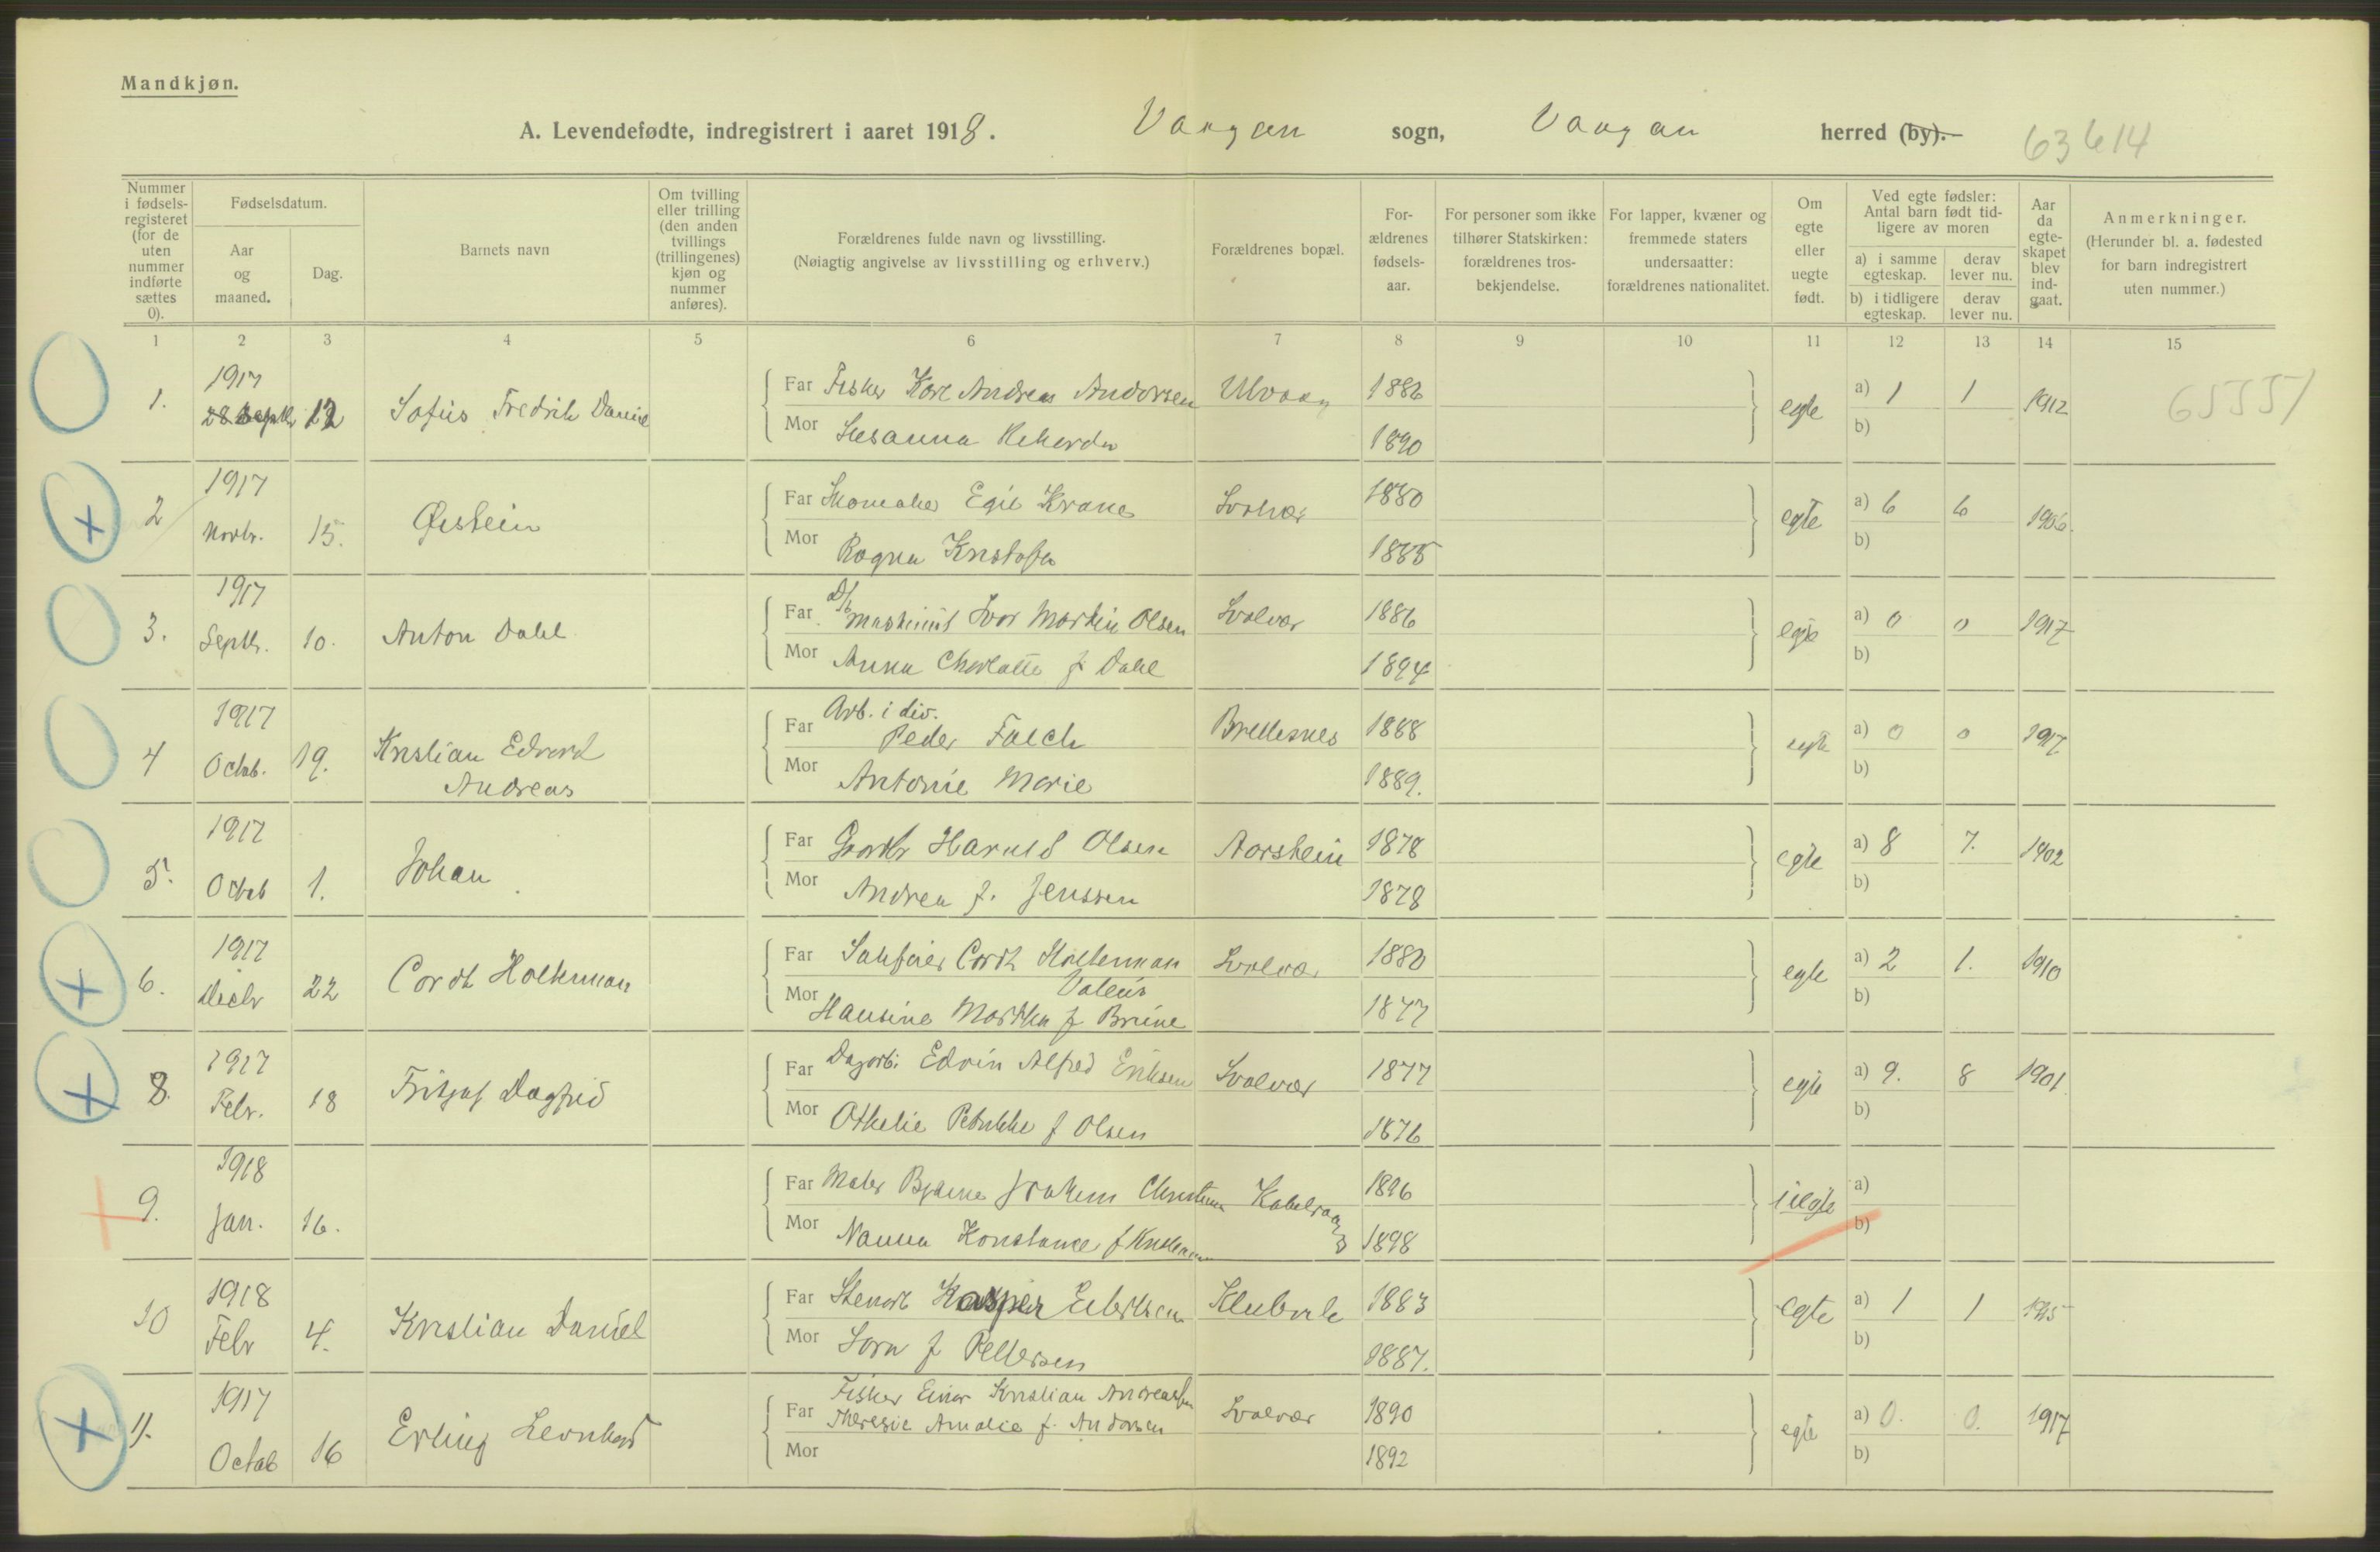 Mandkjøn.
A. Levendefødte, indregistrert i aaret 1918. Vaagan sogn, Vaagan herred (by). 63614
Nummer i fødselsregisteret (for de uten nummer indførte sættes 0).
Fødselsdatum.
Aar og maaned.
Dag.
Barnets navn
Om tvilling eller trilling (den anden tvillings (trillingenes) kjøn og nummer anføres).
Forældrenes fulde navn og livsstilling.
(Nøiagtig angivelse av livsstilling og erhverv.)
Forældrenes bopæl.
For-ældrenes fødsels-aar.
For personer som ikke tilhører Statskirken: forældrenes tros-bekjendelse.
For lapper, kvæner og fremmede staters undersaatter: forældrenes nationalitet.
Om egte eller uegte født.
Ved egte fødsler: Antal barn født tid-ligere av moren
a) i samme egteskap.
derav lever nu.
b) i tidligere egteskap.
derav lever nu.
Aar da egte-skapet blev ind-gaat.
Anmerkninger.
(Herunder bl. a. fødested for barn indregistrert uten nummer.)
1 2 3 4 5 6 7 8 9 10 11 12 13 14 15
1. 1917 28 Septbr 12 Sofus Fredrik Daniel
Far Fisker Karl Andreas Andorsen 1886 egte a) 1 1 1912 65557
Mor Susanna 1890 b)
2 1917 Novbr. 15. Øistein
Far Skomaker Egil Krane Svolvær 1880 egte a) 6 6 1906.
Mor Ragna Kristofa 1885 b)
3. 1917 Septbr. 10. Anton Dahl
Far D/s maskinist Ivar Martin Olsen Svolvær 1886 egte a) 0 0 1917
Mor Anna Charlotte f Dahl 1894 b)
4 1917 Octob. 19. Kristian Edvard Andreas
Far Arb. i div. Peder Falch Brettesnes 1888 egte a) 0 0 1917
Mor Antonie Marie 1889. b)
5. 1917 Octob 1. Johan
Far Harald Olsen Aarstein 1878 egte a) 8 7. 1902
Mor Andrea f. Jenssen 1878 b)
6. 1917 Decbr 22 Cordt Holterman
Far Cordt Holterman Svolvær 1880 egte a) 2 1. 1910
Mor Hansine Marthea f Brune 1877 b)
8. 1917 Febr. 18 Fritjof Dagfid
Far Dagarb. Edvin Alfred Eriksen Svolvær 1877 egte a) 9. 8 1901
Mor Othelie Petrikke f Olsen 1876 b)
9. 1918 Jan. 16.
Far Maler Bjarne Joakim Christensen Kabelvaag 1896 uegte a)
Mor Nanna Konstance f Kristiansen 1898 b)
10 1918 Febr 4. Kristian Daniel
Far Kasper Eilertsen 1883 egte a) 1 1 1915
Mor f Pettersen 1887. b)
11. 1917 Octob 16 Erling Leonhard
Far Fisker Einar Kristian Andreassen Svolvær 1890 egte a) 0. 0. 1917
Theresie Amalie f. Andorsen
Mor 1892 b)